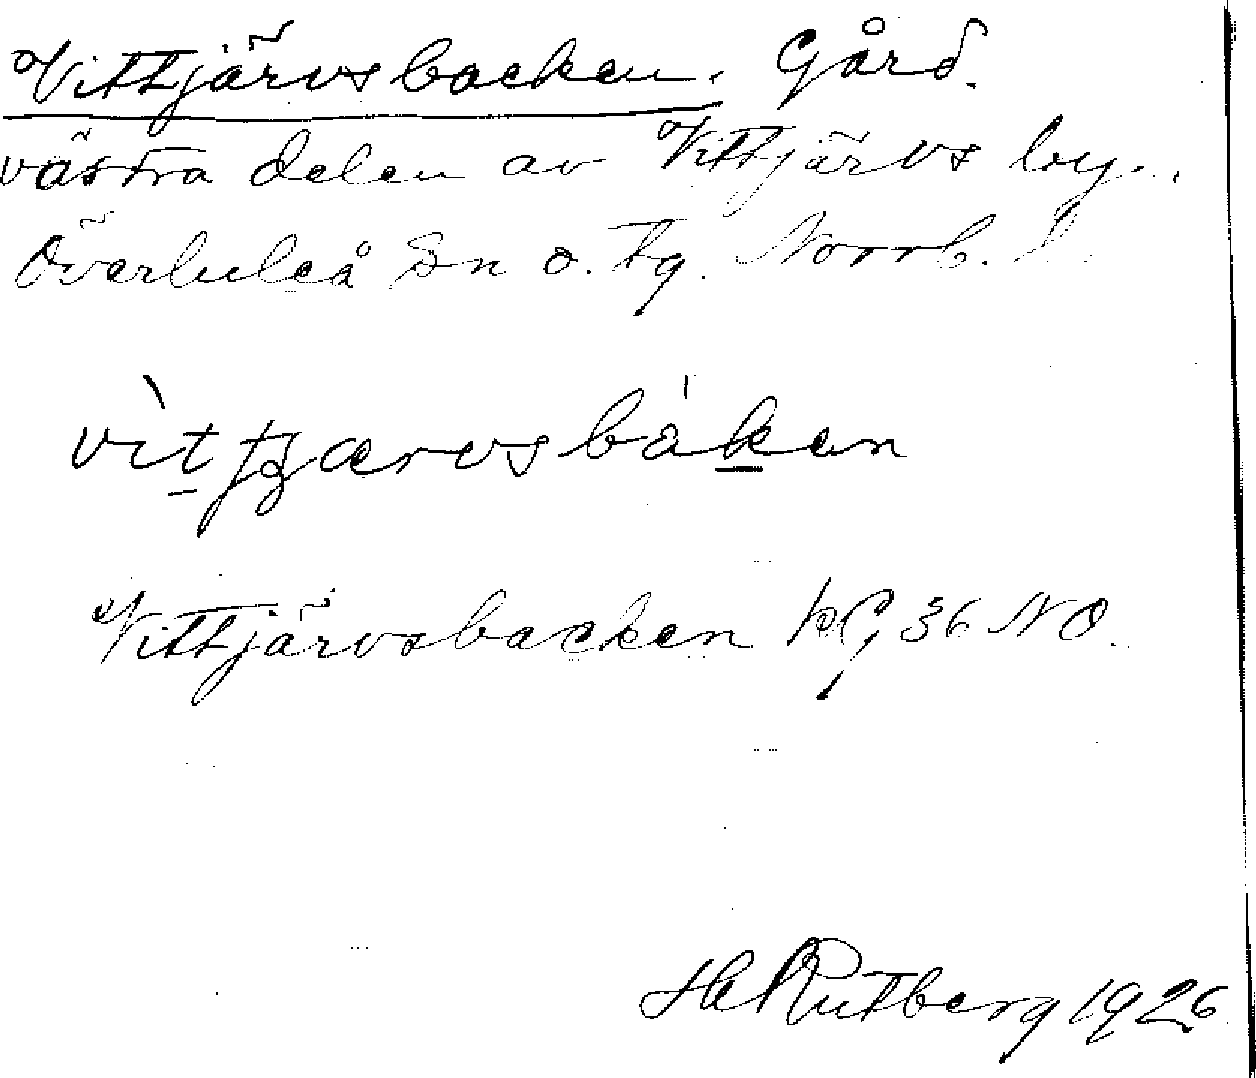 Vittjärvsbacken. Gård.
västra delen av Vittjärvs by.
Överluleå Sn o. tg. Norrb. l.
vìtʃʒærvsbákən
Vittjärvsbacken kG 36 NO.
H Rutberg 1926